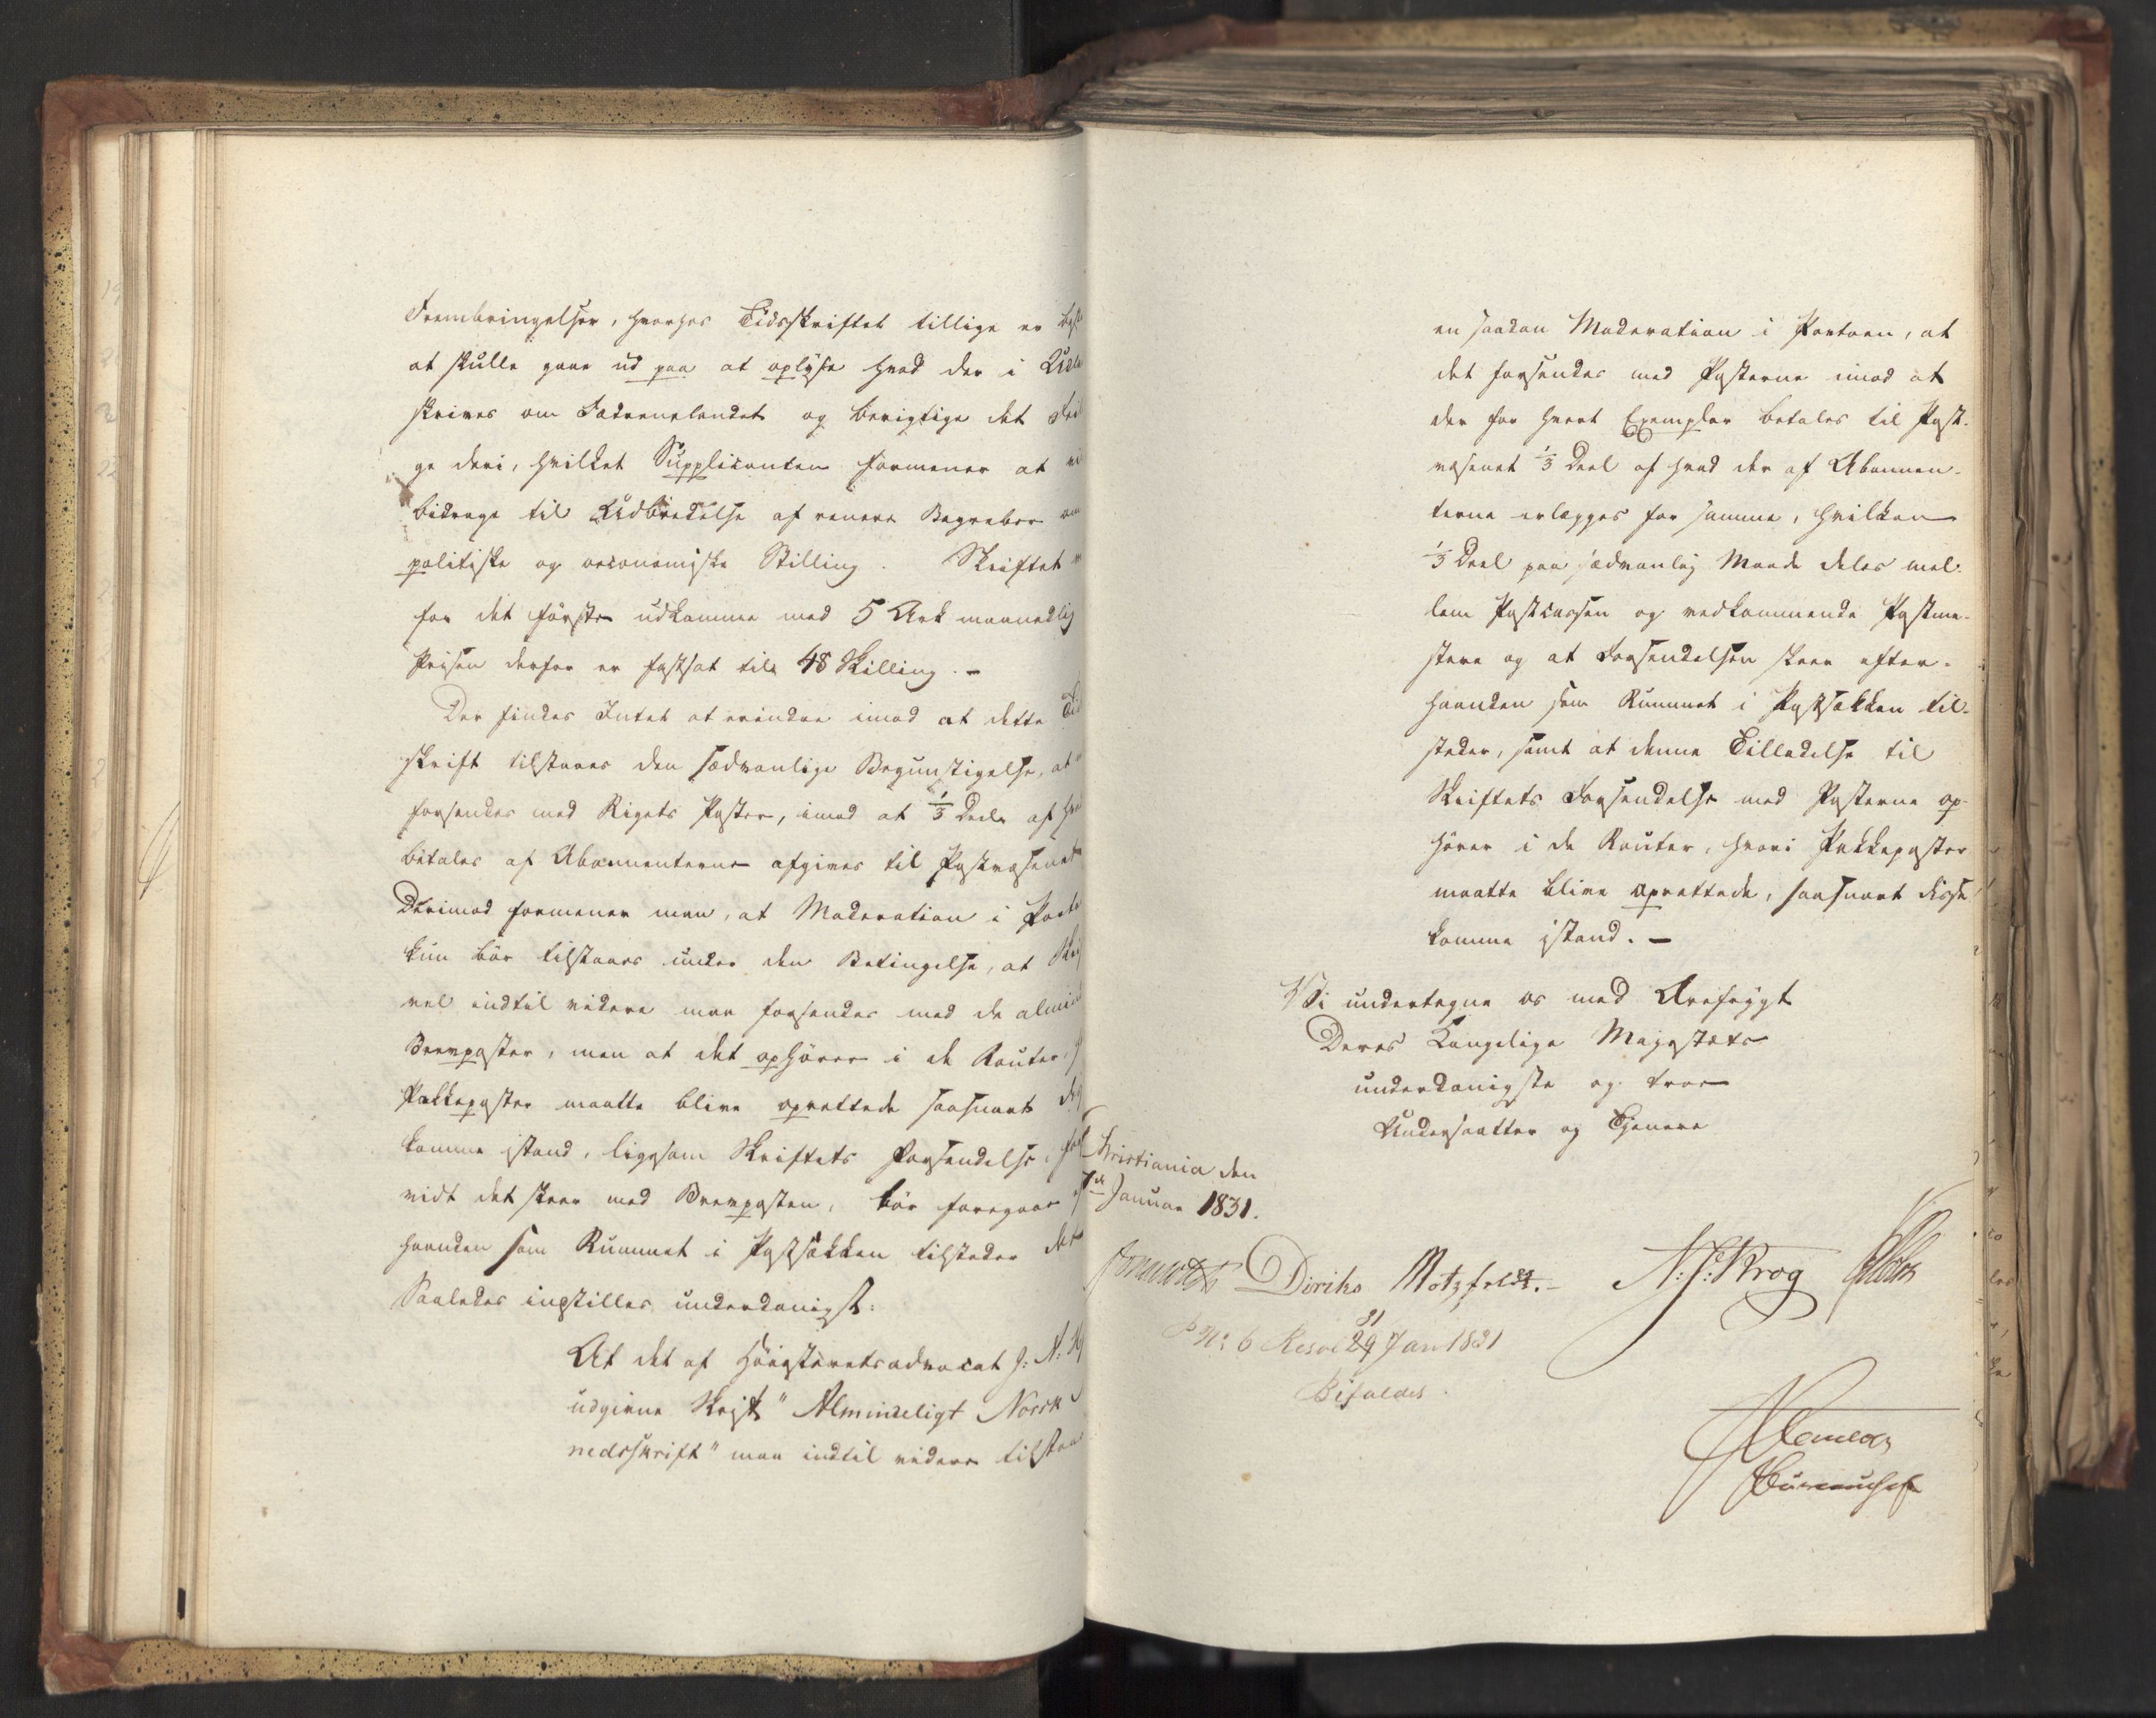 Frembringelser, hvorhos Tidsskriftet tillige er
at skulle gaae ud paa at oplyse hvad der i
skrives om Fædrenelandet og berigtige det
ge deri, hvilket Supplicanten formener at
bidrage til Udbredelse af renere Begreber
politiske og oeconomiske Stilling. Skriftet
for det første udkomme med 5 Ark maanedlig
Prisen derfor er fastsat til 48 Skilling. –
Der findes Intet at erindre imod at dette
skrift tilstaaes den sædvanlige Begunstigelse, at
forsendes med Rigets Poster, imod at 1/3 Deel af
betales af Abonnenterne afgives til Postvæsenet
Derimod formener man, at Moderation i
kun bør tilstaaes under den Betingelse, at
vel indtil videre maa forsendes med de
Brevposter, men at det ophører i de Router,
Pakkeposter maatte blive oprettede saasnart
komme istand, ligesom Skriftets Forsendelse,
vidt det skeer med Brevposten, bør foregaae
haanden som Rummet i Postsækken tilsteder
Saaledes indstilles underdanigst:
At det af Høiesteretsadvocat J: A:
udgivne Skrift "Almindeligt Norsk
nedsskrift" maa indtil videre
en saadan Moderation i Portoen, at
det forsendes med Posterne imod at
der for hvert Exemplar betales til Post-
væsenet 1/3 Deel af hvad der af Abonnen-
terne erlægges for samme, hvilken
1/3 Deel paa sædvanlig Maade deles mel-
lem Postcassen og vedkommende Postme-
stere og at Forsendelsen skeer efter-
haanden som Rummet i Postsækken til-
steder, samt at denne Tilladelse til
Skriftets Forsendelse med Posterne op-
hører i de Router, hvori Pakkeposter
maatte blive oprettede, saasnart disse
komme istand. –
Vi undertegne os med Ærefrygt
Deres Kongelige Majestæts
underdanigste og troe
Undersaatter og Tjenere
Christiania den
7de Januar 1831.
Diriks Motzfeldt. – N: J: Krog
No 6 Resol 29 Jan 1831
31
Bifaldes.
Bureauchef